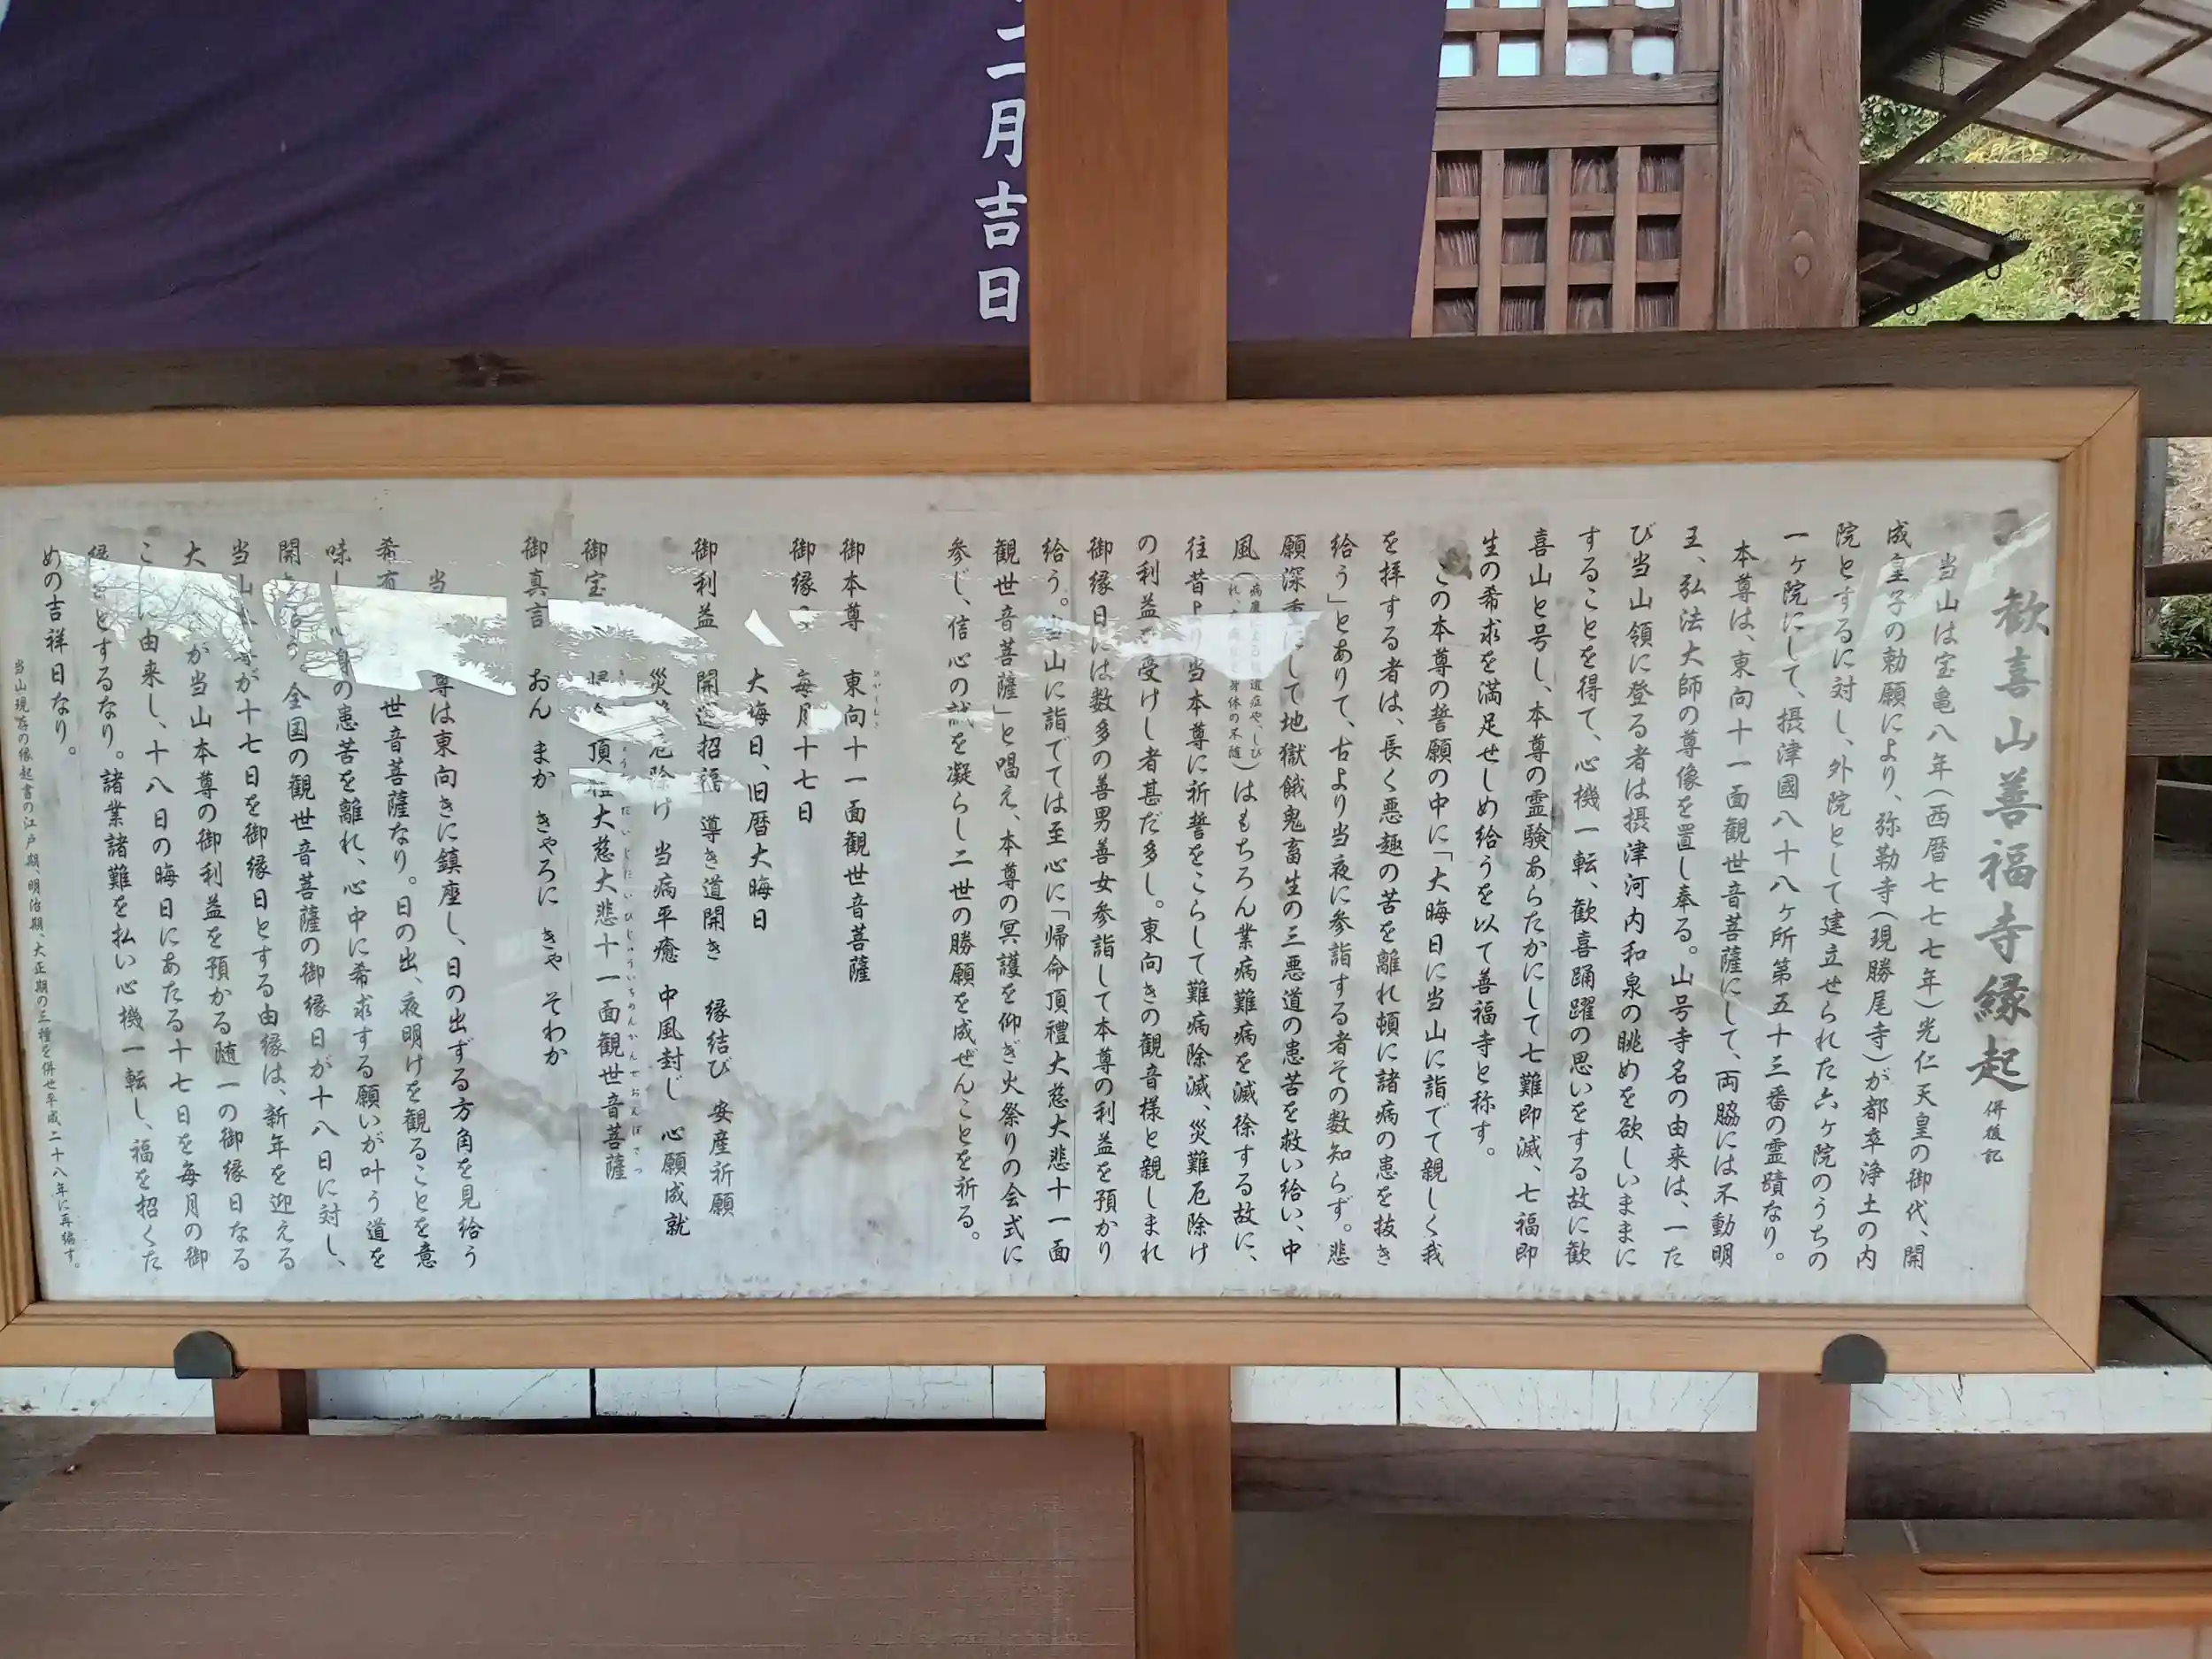 二月吉日
歓喜山善福寺縁起 併後記
当山は宝亀八年(西暦七七七年)光仁天皇の御代、開
成皇子の勅願により、弥勒寺(現勝尾寺)が都卒浄土の内
院とするに対し、外院として建立せられた六ヶ院のうちの
一ヶ院にして、摂津國八十八ヶ所第五十三番の霊蹟なり。
本尊は、東向十一面観世音菩薩にして、両脇には不動明
王、弘法大師の尊像を置し奉る。山号寺名の由来は、一た
び当山領に登る者は摂津河内和泉の眺めを欲しいままに
することを得て、心機一転、歓喜踊躍の思いをする故に歓
喜山と号し、本尊の霊験あらたかにして七難即滅、七福即
生の希求を満足せしめ給うを以て善福寺と称す。
この本尊の誓願の中に「大晦日に当山に詣でて親しく我
を拝する者は、長く悪趣の苦を離れ頓に諸病の患を抜き
給う」とありて、古より当夜に参詣する者その数知らず。悲
願深重にして地獄餓鬼畜生の三悪道の患苦を救い給い、中
風()はもちろん業病難病を滅除する故に、
往昔より当本尊に祈誓をこらして難病除滅、災難厄除け
の利益を受けし者甚だ多し。東向きの観音様と親しまれ
御縁日には数多の善男善女参詣して本尊の利益を預かり
給う。当山に詣でては至心に「帰命頂禮大慈大悲十一面
観世音菩薩」と唱え、本尊の冥護を仰ぎ火祭りの会式に
参じ、信心の誠を凝らし二世の勝願を成ぜんことを祈る。
御本尊 東向十一面観世音菩薩
御縁 毎月十七日
大晦日、旧暦大晦日
御利益 開運招福 導き道開き 縁結び 安産祈願
災 厄除け 当病平癒 中風封じ 心願成就
御宝 頂禮大慈大悲十一面観世音菩薩
御真言 おん まか きゃろに きゃ そわか
当 尊は東向きに鎮座し、日の出ずる方角を見給う
希有 世音菩薩なり。日の出、夜明けを観ることを意
味し 心身の患苦を離れ、心中に希求する願いが叶う道を
開 う。全国の観世音菩薩の御縁日が十八日に対し、
当山 が十七日を御縁日とする由縁は、新年を迎える
大 が当山本尊の御利益を預かる随一の御縁日なる
こ に由来し、十八日の晦日にあたる十七日を毎月の御
縁 とするなり。諸業諸難を払い心機一転し、福を招くた
めの吉祥日なり。
当山現存の縁起書の江戸期、明治期、大正期の三種を併せ平成二十八年に再編す。